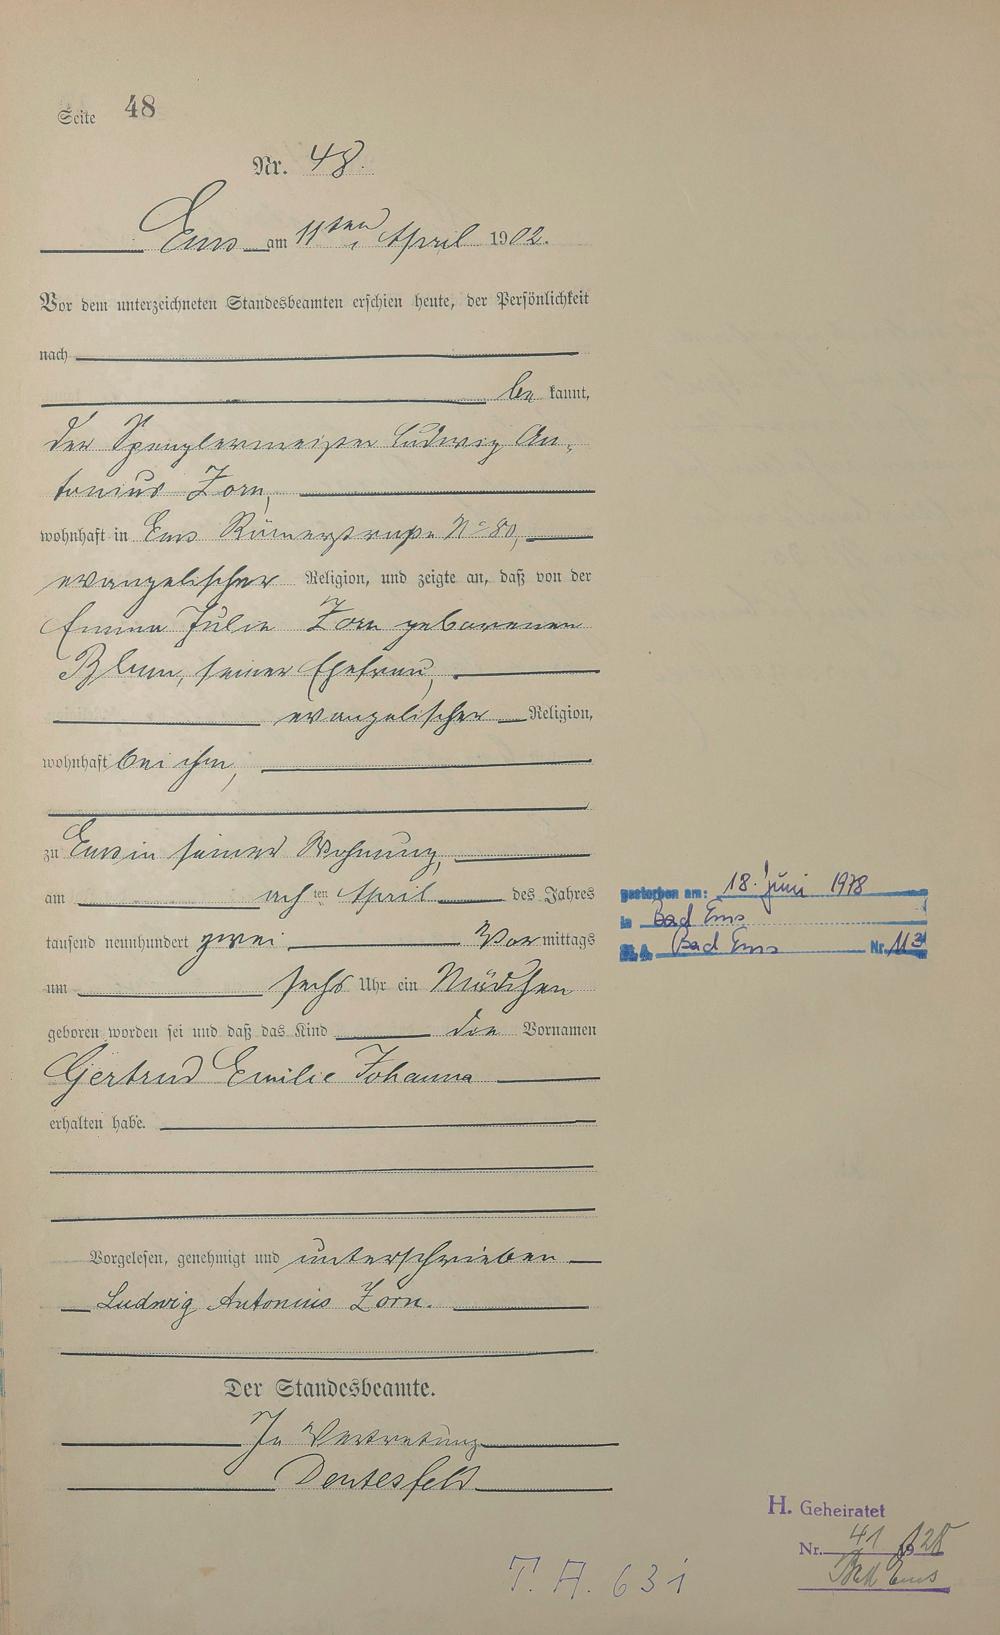 Seite 48
Nr. 48.
Ems am 11ten April 1902.
Vor dem unterzeichneten Standesbeamten erschien heute, der Persönlichkeit
nach
be kannt,
der Spenglermeister Ludwig An-
tonius Zorn,
wohnhaft in Ems Römerstraße No 80,
evangelischer Religion, und zeigte an, daß von der
Emma Julie Zorn geborenen
Blum, seiner Ehefrau,
evangelischer Religion,
wohnhaft bei ihm,
zu Ems in seiner Wohnung,
am ach ten April des Jahres
tausend neunhundert zwei Vor mittags
um sechs Uhr ein Mädchen
geboren worden sei und daß das Kind die Vornamen
Gertrud Emilie Johanna
erhalten habe.
Vorgelesen, genehmigt und unterschrieben
Ludwig Antonius Zorn.
Der Standesbeamte.
In Vertretung
gestorben am: 18. Juni 1978
in Bad Ems
St. A. Bad Ems Nr. 113
H. Geheiratet
Nr. 41 1928
Bad Ems
T. A. 631